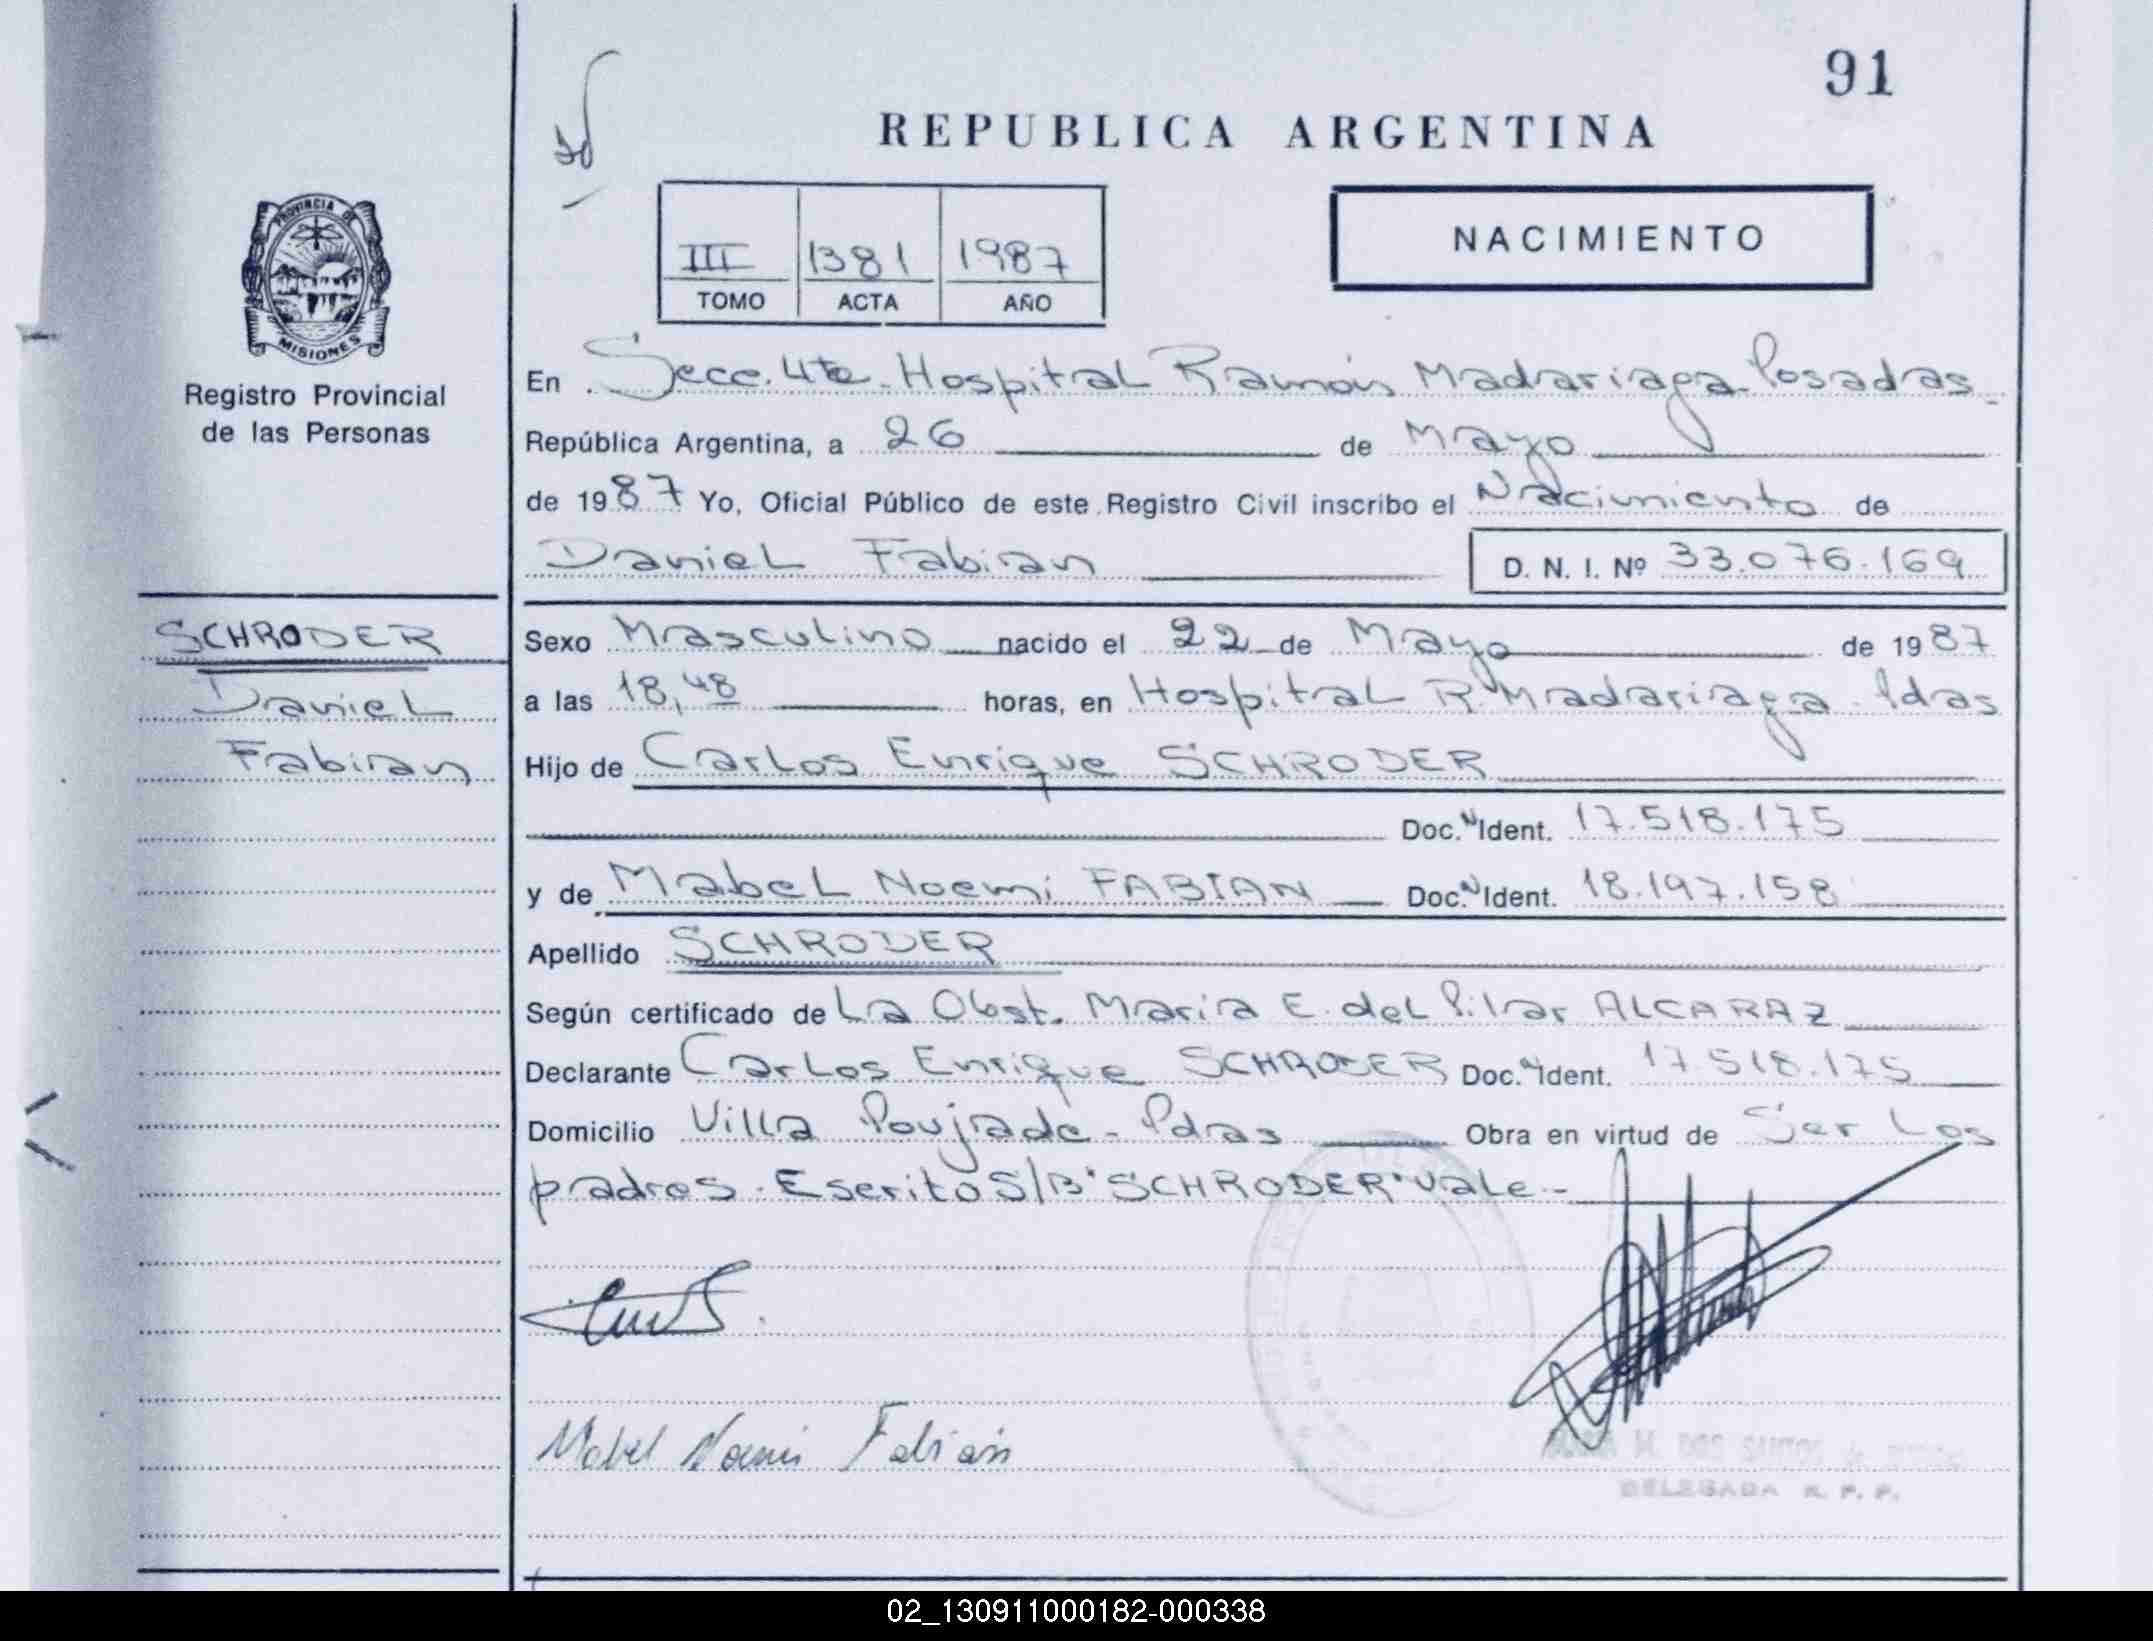 91
REPUBLICA ARGENTINA
NACIMIENTO
III 1381 1987
TOMO ACTA AÑO
PROVINCIA DE
MISIONES
Registro Provincial
de las Personas
En Secc. 4ta. Hospital Ramón Madariaga Posadas
República Argentina, a 26 de Mayo
de 1987 Yo, Oficial Público de este Registro Civil inscribo el Nacimiento de
Daniel Fabian D. N. I. Nº 33.076.169
SCHRODER
Daniel
Fabian
Sexo Masculino nacido el 22 de Mayo de 1987
a las 18,48 horas, en Hospital R. Madariaga. Pdas
Hijo de Carlos Enrique SCHRODER
Doc. N Ident. 17.518.175
y de Mabel Noemi FABIAN Doc. N Ident. 18.197.158
Apellido SCHRODER
Según certificado de La Obst. Maria E. del Pilar ALCARAZ
Declarante Carlos Enrique SCHRODER Doc. N Ident. 17.518.175
Domicilio Villa Poujade - Pdas Obra en virtud de Ser Los
padres. Escrito S/B "SCHRODER" vale.-
Mabel Noemi Fabian
M. DOS SANTOS
DELEGADA R. P. P.
02_130911000182-000338